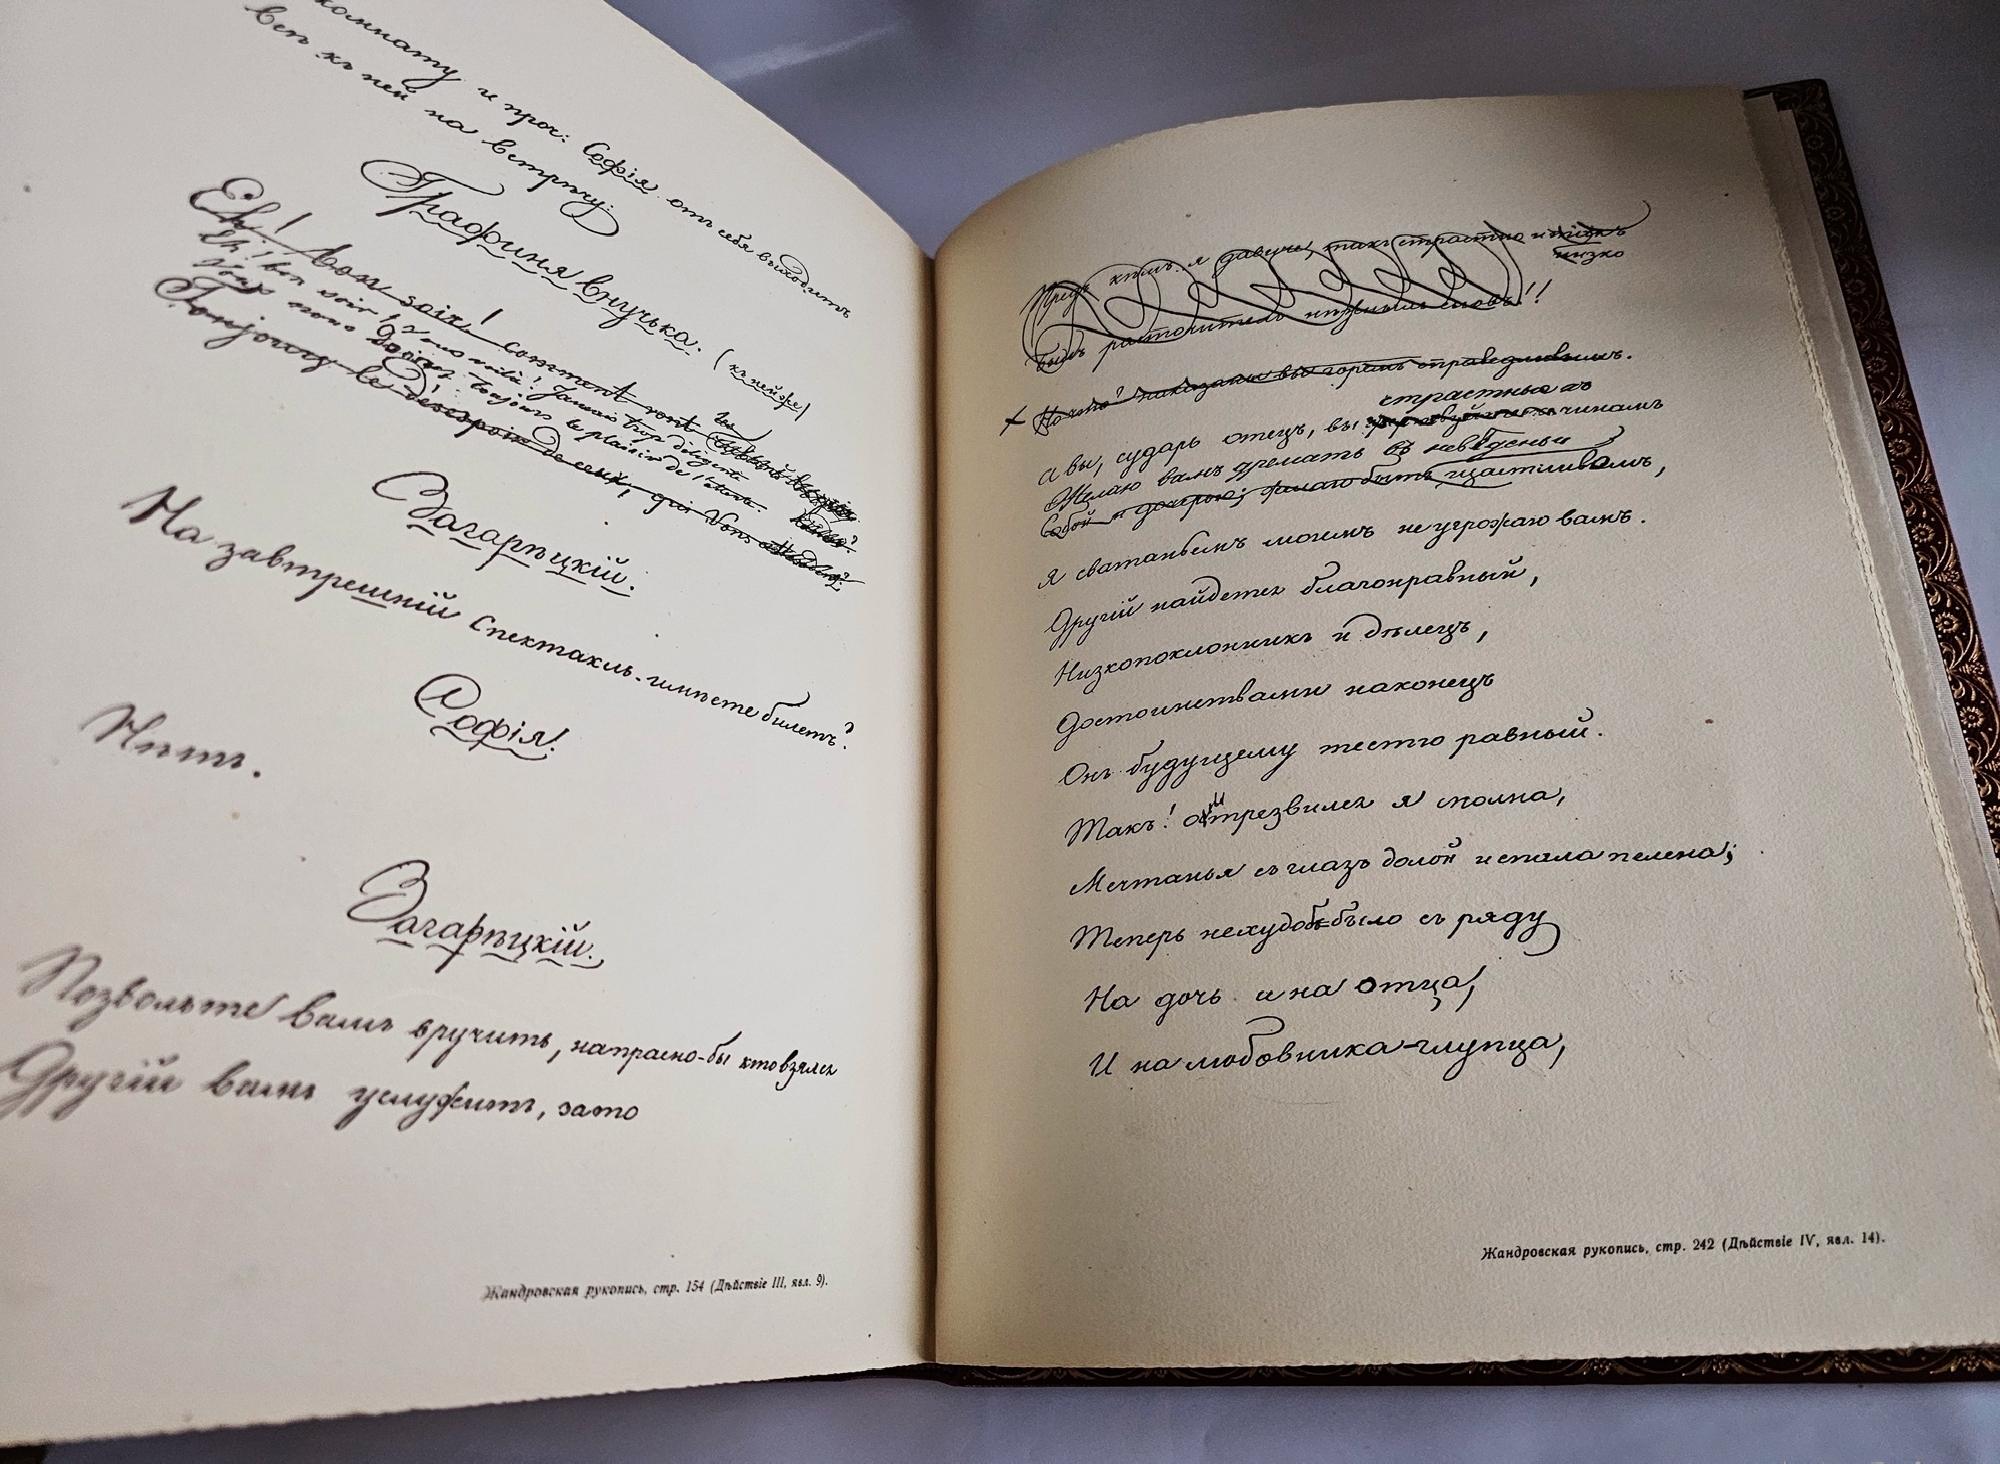 комнату и проч: Софія отъ себя выходитъ
всѣ къ ней на встрѣчу:
Графиня внучька. (къ ней же)
Eh! bon soir! comment vont
Eh! bon soir! Vous voilà! Jamais trop diligente
Vous nous donnez toujours le plaisir de l'
Toujours le desespoir de ceux, qui Vous
Загарѣцкій.
На завтрешній спектакль имѣете билетъ?
Софія.
Нѣтъ.
Загарѣцкій.
Позвольте вамъ вручить, напрасно-бы кто взялся
Другій вамъ услужить, зато
Жандровская рукопись, стр. 154 (Дѣйствіе III, явл. 9).
Предъ кѣмъ я давиче, такъ страстно и
низко
Былъ расточитель нѣжныхъ словъ!!
наказаны вы горемъ справедливымъ.
страстные къ
А вы, сударь отецъ, вы чинамъ
Желаю вамъ дремать въ невѣденьи
Собой и дочерью; желаю быть щастливымъ,
Я сватаньемъ моимъ не угрожаю вамъ.
Другій найдется благонравный,
Низкопоклонникъ и дѣлецъ,
Достоинствами наконецъ
Онъ будущему тестю равный.
Такъ! отрезвился я сполна,
Мечтанья съ глазъ долой и спала пелена;
Теперь нехудо б было съ ряду
На дочь и на отца,
И на любовника-глупца,
Жандровская рукопись, стр. 242 (Дѣйствіе IV, явл. 14).